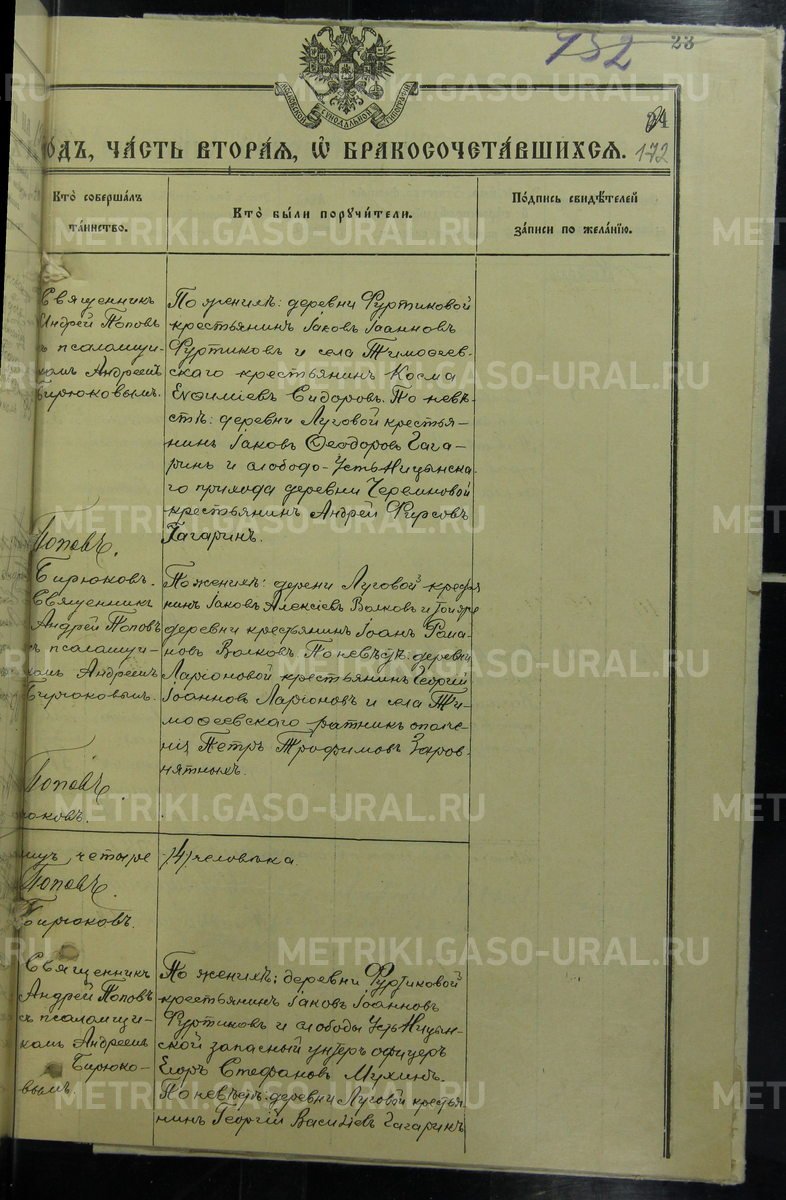 132
23
24
172
МОСКОВСКОЙ СѴНОДАЛЬНОЙ ТИПОГРАФІИ
ОДЪ, ЧАСТЬ ВТОРАЯ, Ѿ БРАКОСОЧЕТАВШИХСЯ.
Кто совершалъ
таинство.
Кто были поручители.
Подпись свидѣтелей
записи по желанію.
Священникъ
Андрей Поповъ
ъ псаломщи-
комъ Андреемъ
Бирюковымъ.
Поповъ.
Бирюковъ.
По женихѣ: деревни Фуртиковой
крестьянинъ Іаковъ Іоанновъ
Фуртиковъ и села Тимоѳеев-
скаго крестьянинъ Косма
Евѳиміевъ Сидоровъ. По невѣ-
стѣ: деревни Луговой крестья-
нинъ Іаковъ Ѳеодоровъ Гага-
ринъ и слободо-Усть Ницынска-
го прихода деревни Черемновой
крестьянинъ Андрей Фирсовъ
Гагаринъ.
Священникъ
Андрей Поповъ
съ псаломщи-
комъ Андреемъ
Бирюковымъ.
Поповъ.
рюковъ.
По женихѣ: дерени Луговой крестья
нинъ Іаковъ Алексіевъ Волковъ и
деревни крестьянинъ Іоанъ Рома-
новъ Волковъ. По невѣстѣ: деревни
Ларіоновой крестьянинъ Георгій
Іоанновъ Ларіоновъ и села Ти-
моѳеевскаго ратникъ ополче-
нія Петръ Трофимовъ Заров-
нятныхъ.
четыре /4/ человѣка.
Поповъ.
Бирюковъ.
Священникъ
Андрей Поповъ
съ псаломщи-
комъ Андреемъ
Бирюко-
вымъ.
По женихѣ: деревни Фуртиковой
крестьянинъ Іаковъ Іоанновъ
Фуртиковъ и слободы Усть Ницын-
ской запасный унтеръ офицеръ
Егоръ Стефановъ Мухинъ.
По невѣстѣ: деревни Луговой крестья-
нинъ Георгій Василіевъ Гагаринъ
METRIKI.GASO-URAL.RU